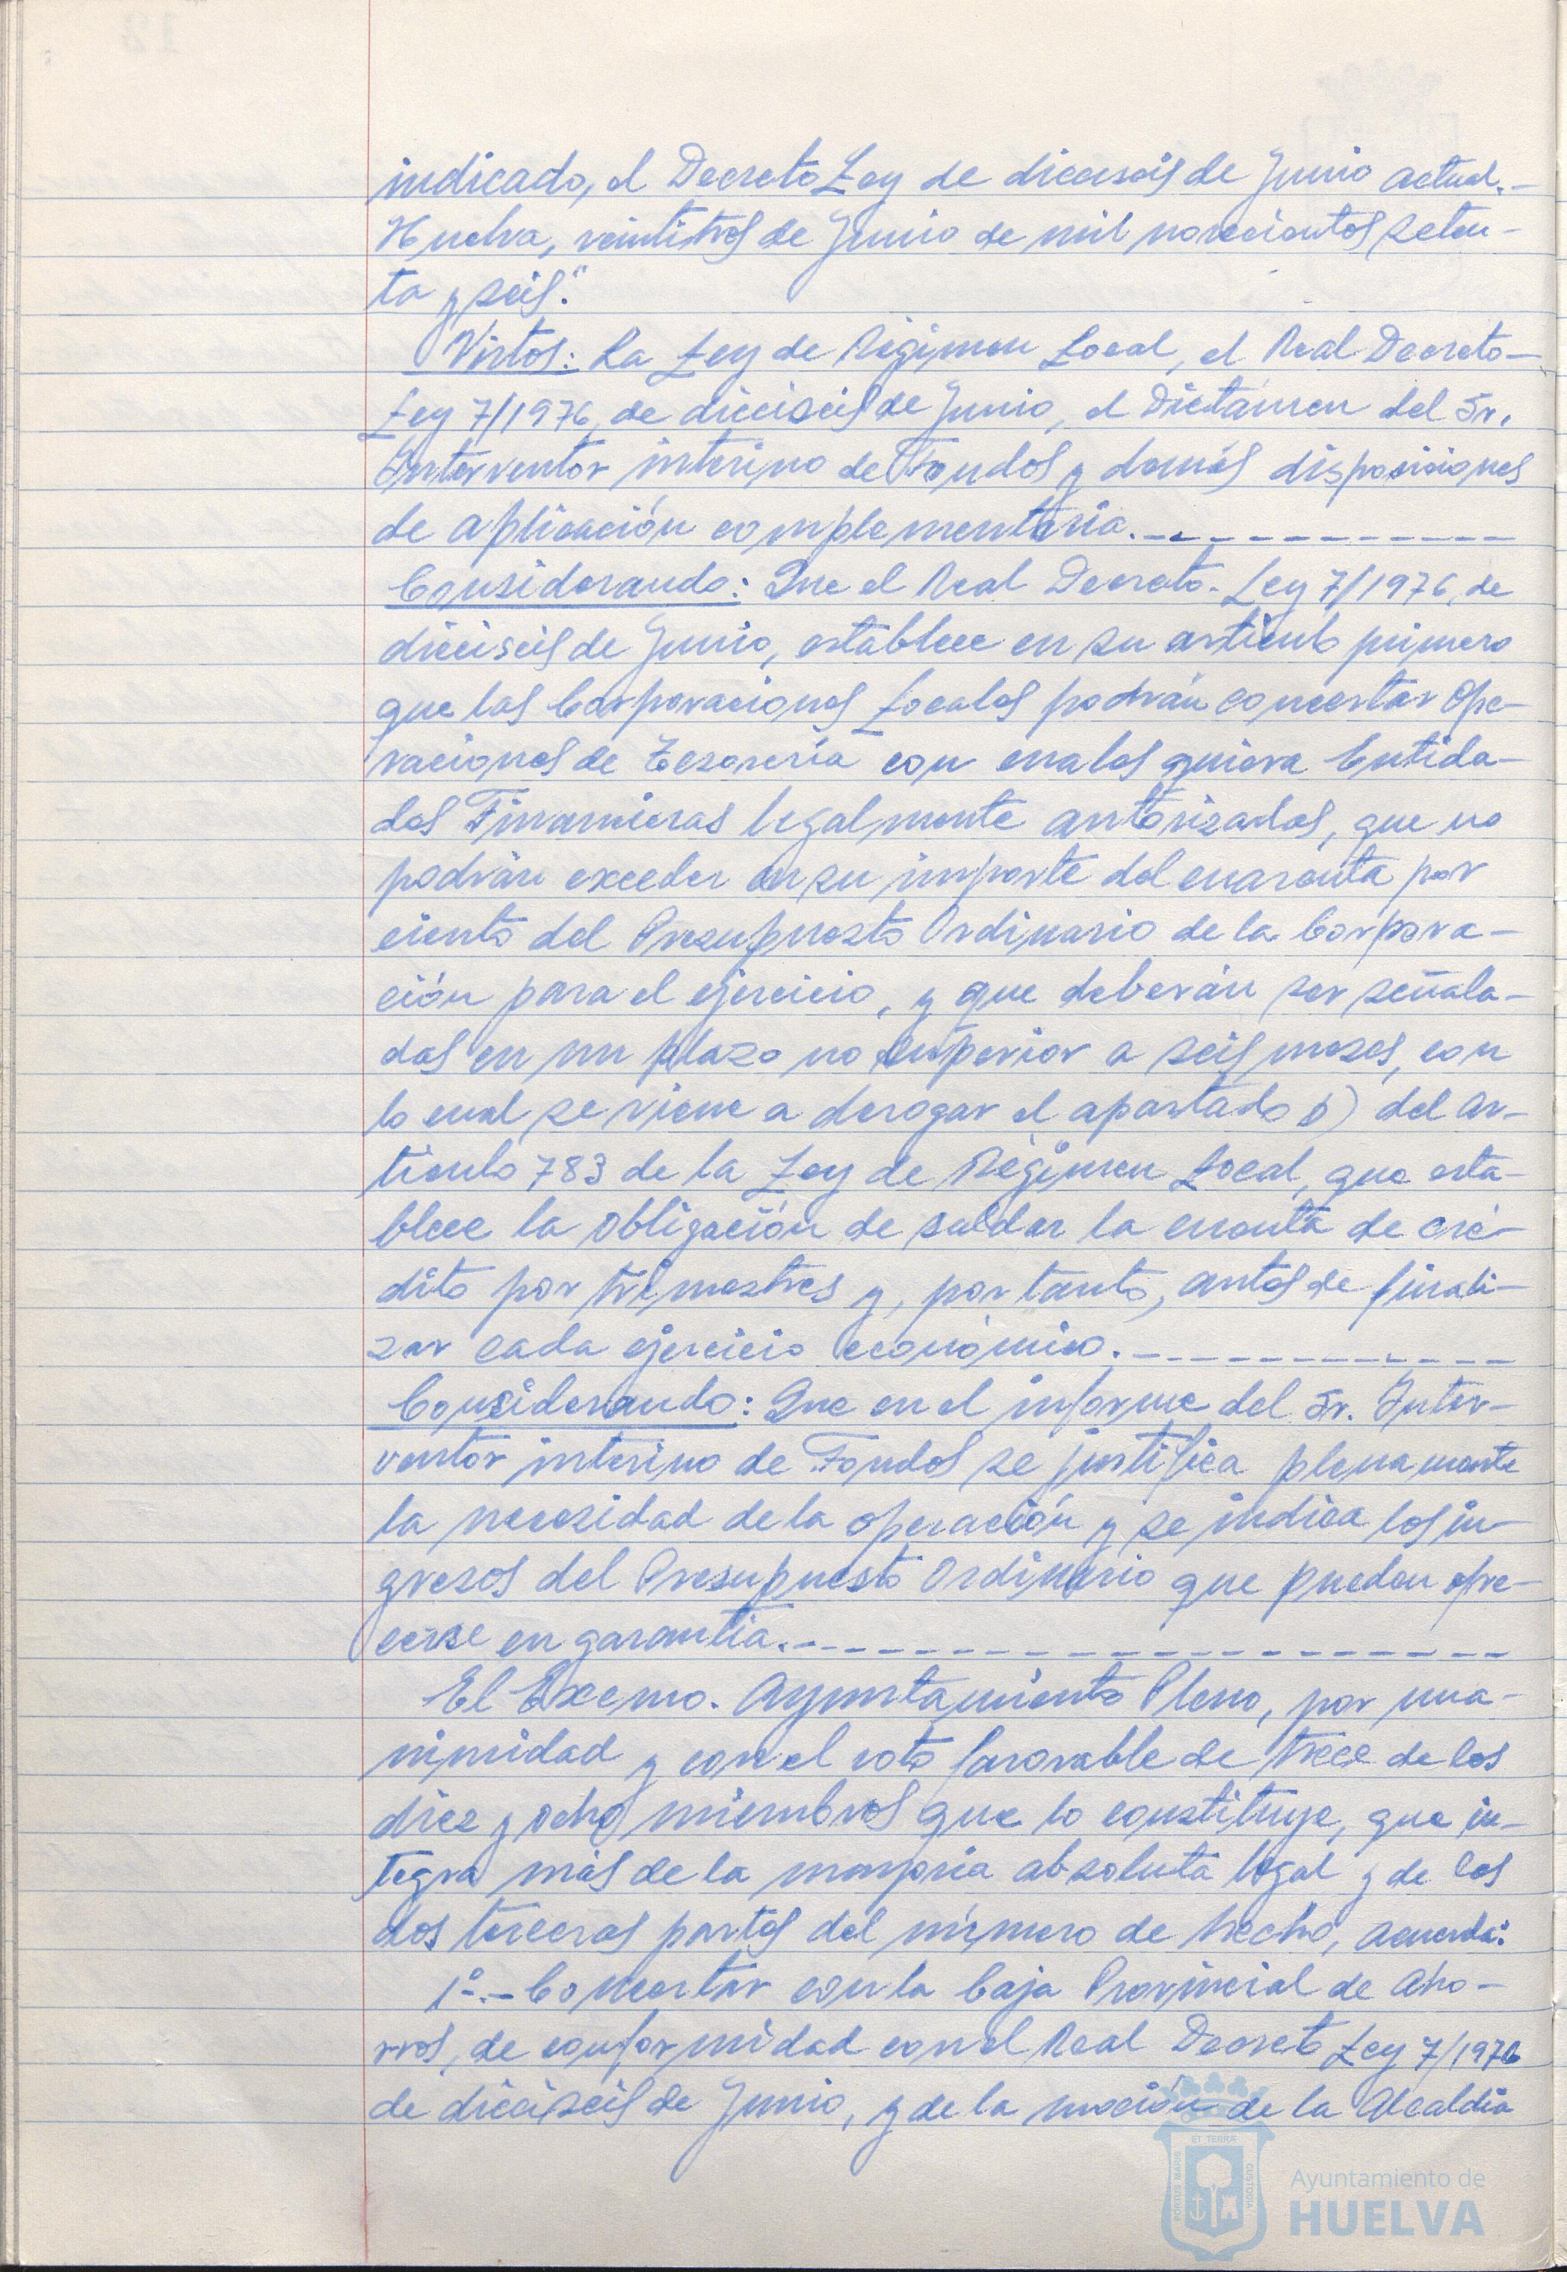 indicado, el Decreto Ley de dieciseis de Junio actual.-
Huelva, veintitres de Junio de mil novecientos seten-
ta y seis."
Vistos: La Ley de Régimen Local, el Real Decreto-
Ley 7/1976, de dieciseis de Junio, el Dictámen del Sr.
Interventor interino de Fondos y demás disposiciones
de aplicación complementaria.-
Considerando: Que el Real Decreto-Ley 7/1976, de
dieciseis de Junio, establece en su articulo primero
que las Corporaciones Locales podrán concertar Ope-
raciones de Tesorería con cualesquiera Entida-
des Financieras legalmente autorizadas, que no
podrán exceder en su importe del cuarenta por
ciento del Presupuesto Ordinario de la Corpora-
ción para el ejercicio, y que deberán ser señala-
das en un plazo no superior a seis meses, con
lo cual se viene a derogar el apartado b) del ar-
tículo 783 de la Ley de Régimen Local, que esta-
blece la obligación de saldar la cuenta de cré-
dito por trimestres y, por tanto, antes de finali-
zar cada ejercicio económico.-
Considerando: Que en el informe del Sr. Inter-
ventor interino de Fondos se justifica plenamente
la necesidad de la operación y se indica los in-
gresos del Presupuesto Ordinario que pueden ofre-
cerse en garantía.-
El Excmo. Ayuntamiento Pleno, por una-
nimidad y con el voto favorable de trece de los
diez y ocho miembros que lo constituye, que in-
tegra más de la mayoría absoluta legal y de las
dos terceras partes del número de hecho, acuerda:
1º.- Concertar con la Caja Provincial de Aho-
rros, de conformidad con el Real Decreto Ley 7/1976
de dieciseis de Junio, y de la moción de la Alcaldía
PORTUS MARIS ET TERRAE CUSTODIA
Ayuntamiento de
HUELVA